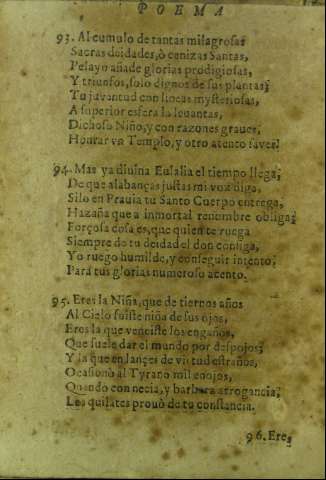 POEMA
93. Al cumulo de tantas milagrosas
Sacras deidades, ò cenizas Santas,
Pelayo añade glorias prodigiosas,
Y triunfos, solo dignos de sus plantas;
Tu juventud con lineas mysteriosas,
A superior esfera la levantas,
Dichoso Niño, y con razones graues,
Honrar un Templo, y otro atento saves.
94. Mas ya diuina Eulalia el tiempo llega,
De que alabanças justas mi voz diga,
Si lo en Prauia tu Santo Cuerpo entrega,
Hazaña que a inmortal renombre obliga;
Forçosa cosa es, que quien te ruega
Siempre de tu deidad el don consiga,
Yo ruego humilde, y conseguir intento,
Para tus glorias numeroso acento.
95. Eres la Niña, que de tiernos años
Al Cielo fuiste niña de sus ojos,
Eres la que venciste los engaños,
Que suele dar el mundo por despojos;
Y la que en lançes de virtud estraños,
Ocasionò al Tyrano mil enojos,
Quando con necia, y barbara arrogancia,
Los quilates prouò de tu constancia.
96. Eres